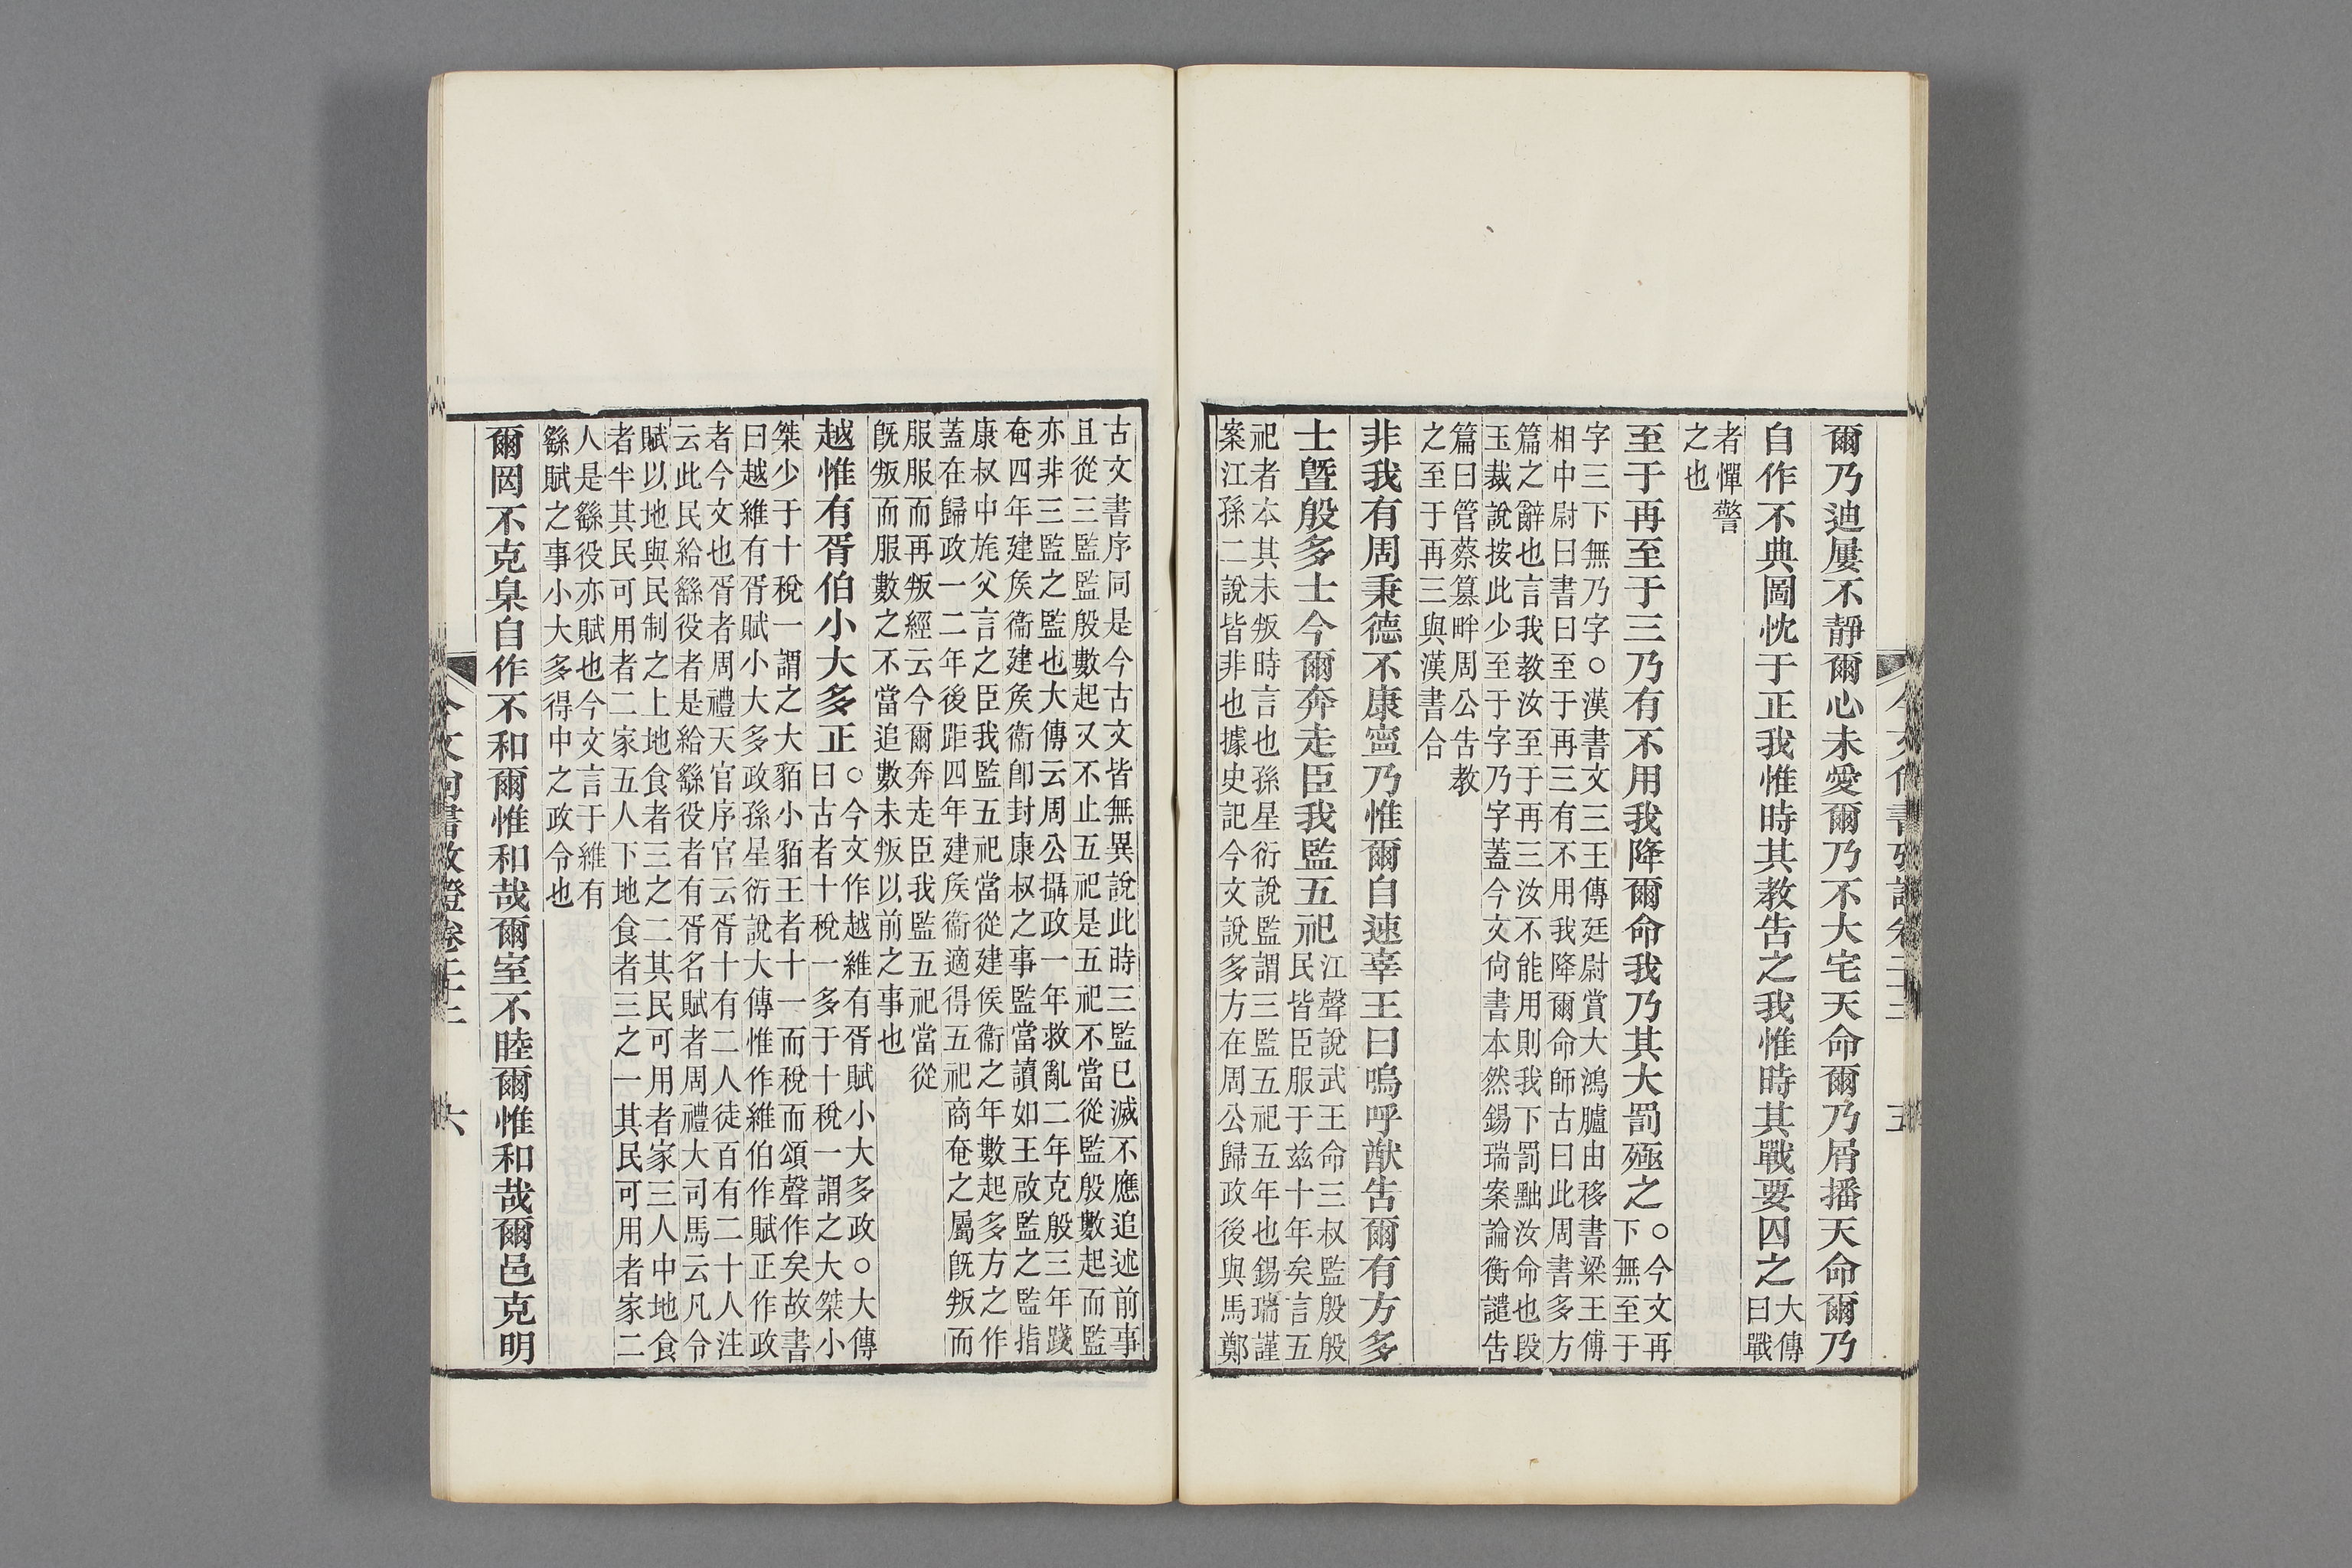 爾乃迪屢不靜爾心未愛爾乃不大宅天命爾乃屑播天命爾乃
自作不典圖忱于正我惟時其教告之我惟時其戰要囚之大傳
曰戰
者憚警
之也
至于再至于三乃有不用我降爾命我乃其大罰殛之○今文再
下無至于
字三下無乃字○漢書文三王傳廷尉賞大鴻臚由移書梁王傅
相中尉曰書曰至于再三有不用我降爾命師古曰此周書多方
篇之辭也言我教汝至于再三汝不能用則我下罰黜汝命也段
玉裁說按此少至于字乃字蓋今文尙書本然錫瑞案論衡譴告
篇曰管蔡篡畔周公告教
之至于再三與漢書合
非我有周秉德不康寧乃惟爾自速辜王曰嗚呼猷告爾有方多
士暨殷多士今爾奔走臣我監五祀江聲說武王命三叔監殷殷
民皆臣服于兹十年矣言五
祀者本其未叛時言也孫星衍說監謂三監五祀五年也錫瑞謹
案江孫二說皆非也據史記今文說多方在周公歸政後與馬鄭
五
古文書序同是今古文皆無異說此時三監已滅不應追述前事
且從三監監殷數起又不止五祀是五祀不當從監殷數起而監
亦非三監之監也大傳云周公攝政一年救亂二年克殷三年踐
奄四年建矦衞建矦衞卽封康叔之事監當讀如王啟監之監指
康叔中旄父言之臣我監五祀當從建侯衞之年數起多方之作
蓋在歸政一二年後距四年建矦衞適得五祀商奄之屬旣叛而
服服而再叛經云今爾奔走臣我監五祀當從
旣叛而服數之不當追數未叛以前之事也
越惟有胥伯小大多正○今文作越維有胥賦小大多政○大傳
曰古者十稅一多于十稅一謂之大桀小
桀少于十稅一謂之大貊小貊王者十一而稅而頌聲作矣故書
曰越維有胥賦小大多政孫星衍說大傳惟作維伯作賦正作政
者今文也胥者周禮天官序官云胥十有二人徒百有二十人注
云此民給繇役者是給繇役者有胥名賦者周禮大司馬云凡令
賦以地與民制之上地食者三之二其民可用者家三人中地食
者半其民可用者二家五人下地食者三之一其民可用者家二
人是繇役亦賦也今文言于維有
繇賦之事小大多得中之政令也
爾罔不克臬自作不和爾惟和哉爾室不睦爾惟和哉爾邑克明
今文尙書攷證卷二十二 六